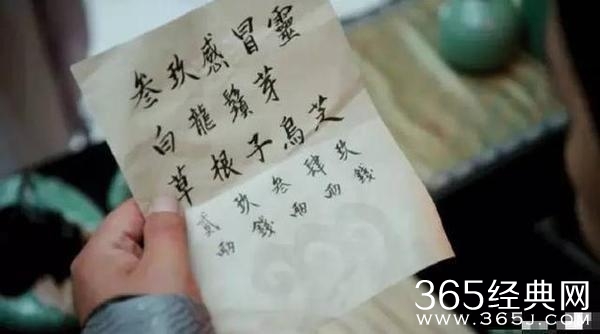 叁玖感冒靈
白龍鬚芽
草根子烏芝
貳玖叁肆玖
兩錢兩兩錢
365经典网
WWW.365J.COM